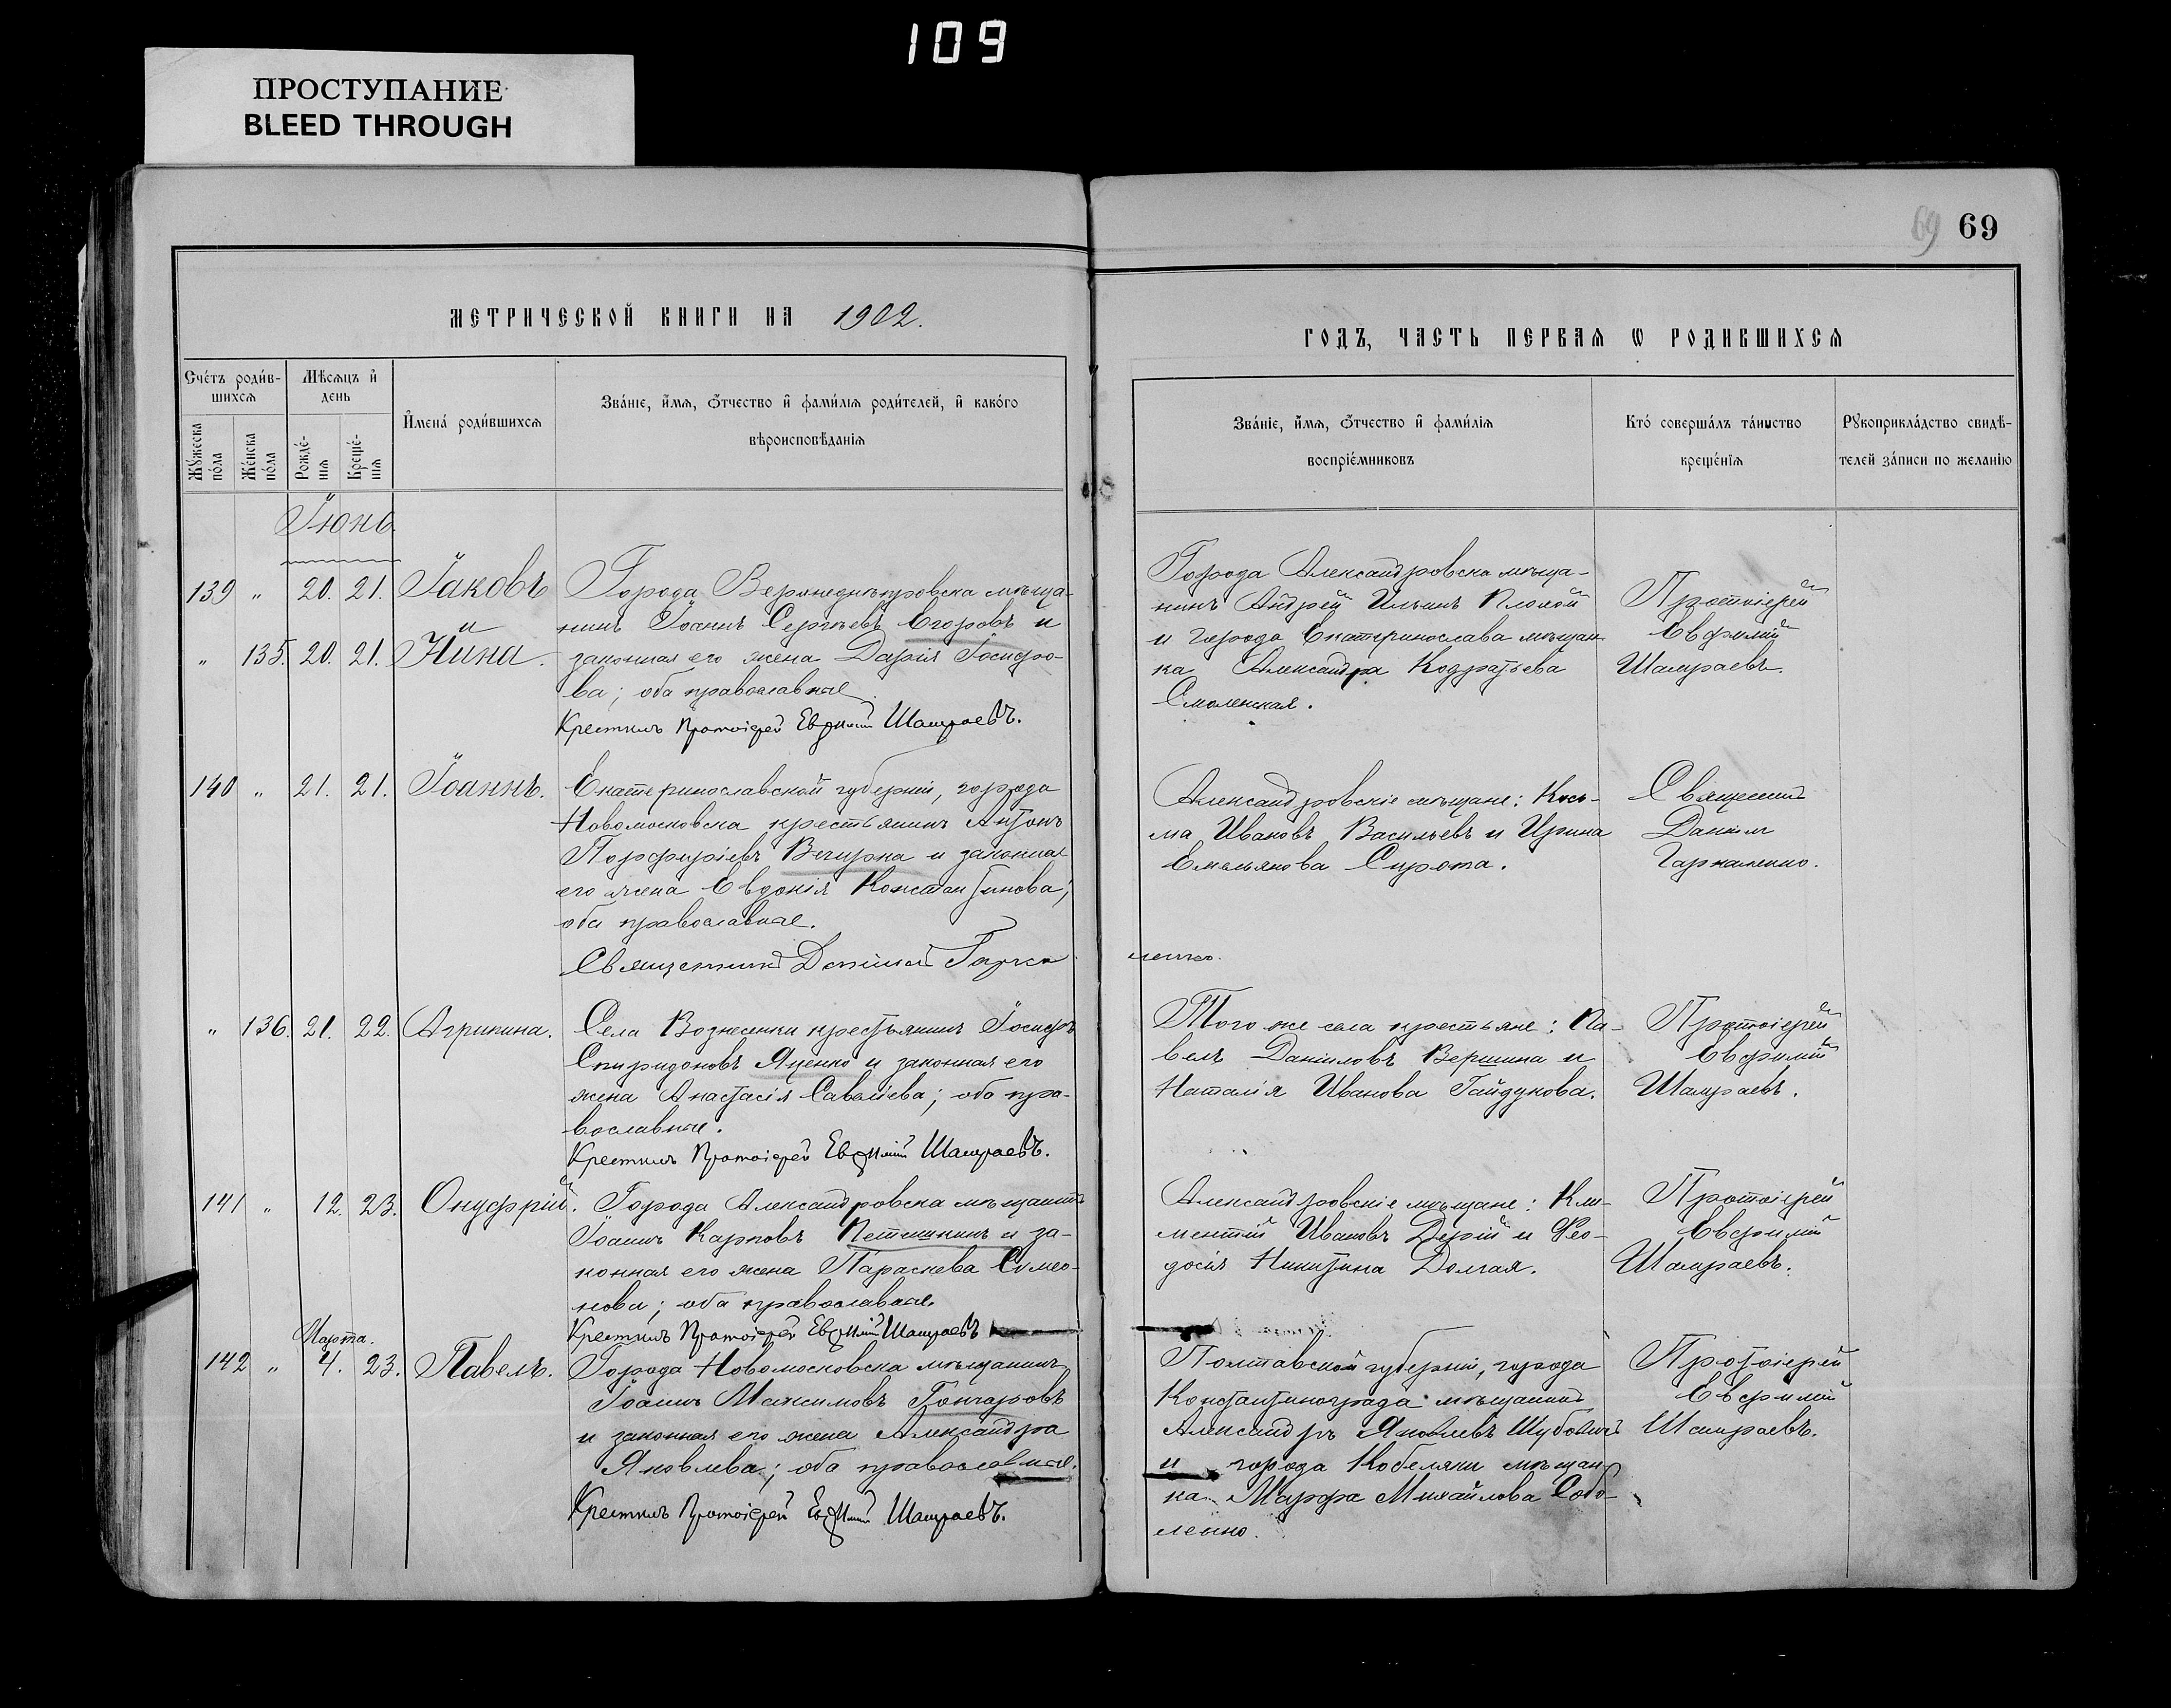 109
ПРОСТУПАНИЕ
BLEED THROUGH
69 69
МЕТРИЧЕСКОЙ КНИГИ НА 1902.
ГОДЪ, ЧАСТЬ ПЕРВАѦ Ѡ РОДИВШИХСѦ
Счетъ родив-
шихсѧ
Мѣсѧцъ и
день
Мꙋжеска
пола
Женска
пола
Рожде-
нїѧ
Креще-
нїѧ
Имена родившихсѧ
Званїе, имѧ, ѿчество и фамилїѧ родителей, и какого
вѣроисповѣданїѧ
Званїе, имѧ, ѿчество и фамилїѧ
воспрїемниковъ
Кто совершалъ таинство
крещенїѧ
Рꙋкоприкладство свидѣ-
телей записи по желанїю
Іюнь
139 " 20. 21. Іаковъ
и
" 135. 20. 21. Нина.
Города Верхнеднѣпровска мѣща-
нинъ Іоаннъ Сергѣевъ Егоровъ и
законная его жена Дарія Іосифо-
ва; оба православные.
Крестилъ Протоіерей Евфимій Шамраевъ.
Города Александровска мѣща-
нинъ Андрей Ильинъ Плохой
и города Екатеринослава мѣщан-
ка Александра Кодратьева
Смоленская.
Протоіерей
Евфимій
Шамраевъ.
140 " 21. 21. Іоаннъ.
Екатеринославской губерніи, города
Новомосковска крестьянинъ Антонъ
Порфиріевъ Вечирка и законная
его жена Евдокія Константинова;
оба православные.
Священникъ Даніилъ Гарка
ленко.
Александровскіе мѣщане: Кось-
ма Ивановъ Васильевъ и Ирина
Емельянова Сирота.
Священникъ
Даніилъ
Гаркаленко.
" 136. 21. 22. Агрипина.
Села Вознесенки крестьянинъ Іосифъ
Спиридоновъ Яценко и законная его
жена Анастасія Саватіева; оба пра-
вославные.
Крестилъ Протоіерей Евфимій Шамраевъ.
Того же села крестьяне: Па-
велъ Даніиловъ Вершина и
Наталія Иванова Гайдукова.
Протоіерей
Евфимій
Шамраевъ.
141 " 12. 23. Онуфрій.
Города Александровска мѣщанинъ
Іоаннъ Карповъ и за-
конная его жена Параскева Симео-
нова; оба православные.
Крестилъ Протоіерей Евфимій Шамраевъ
Александровскіе мѣщане: Кли-
ментій Ивановъ Дерій и Ѳео-
досія Никитина Долгая.
Протоіерей
Евфимій
Шамраевъ.
Марта.
142 " 4. 23. Павелъ.
Города Новомосковска мѣщанинъ
Іоаннъ Максимовъ Гончаровъ
и законная его жена Александра
Яковлева; оба православные.
Крестилъ Протоіерей Евфимій Шамраевъ.
Полтавской губерніи, города
Константинограда мѣщанинъ
Александръ Яковлевъ
и города Кобеляки мѣщан-
ка Марфа Михайлова Собо-
ленко.
Протоіерей
Евфимій
Шамраевъ.